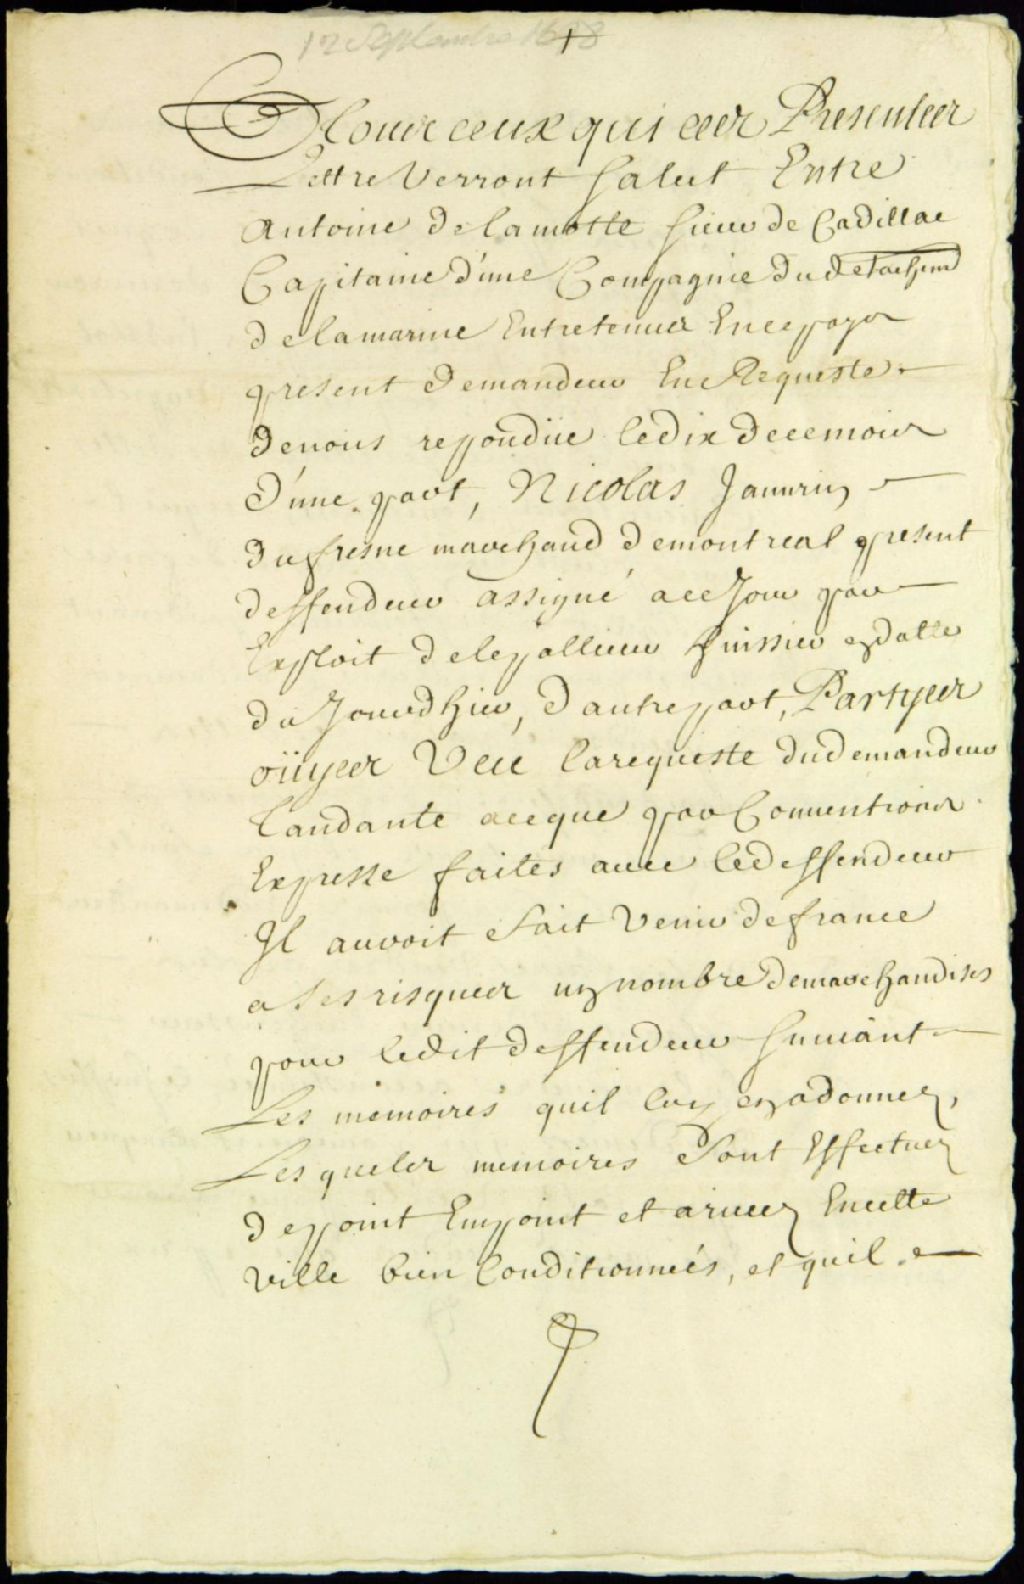 12 Septembre 1698
A tous ceux qui ces Presentes
Lettre Verront Salut Entre
Antoine de lamotte sieur de Cadillac
Capitaine d'une Compagnie du detachemt
de la marine Entretenues En ce pays
present demandeur En Requeste
de nous repondüe le dix de ce mois
d'une part, Nicolas Janurin
dufresne marchand de montreal present
deffendeur assigné a ce Jour par
Exploit de lepallieur huissier en datte
du Jour dhier, d'autre part, Partyes
oüyes Veu la requeste du demandeur
tandante a ce que par Conuentions
Expresse faites auec le deffendeur
Il auroit fait Venir de france
a ses risques un nombre de marchandises
pour ledit deffendeur suiuant
Les memoires quil luy en a donnez,
Les quels memoires sont Effectuez
de point En point et ariuez En cette
Ville bien Conditionnées, et quil